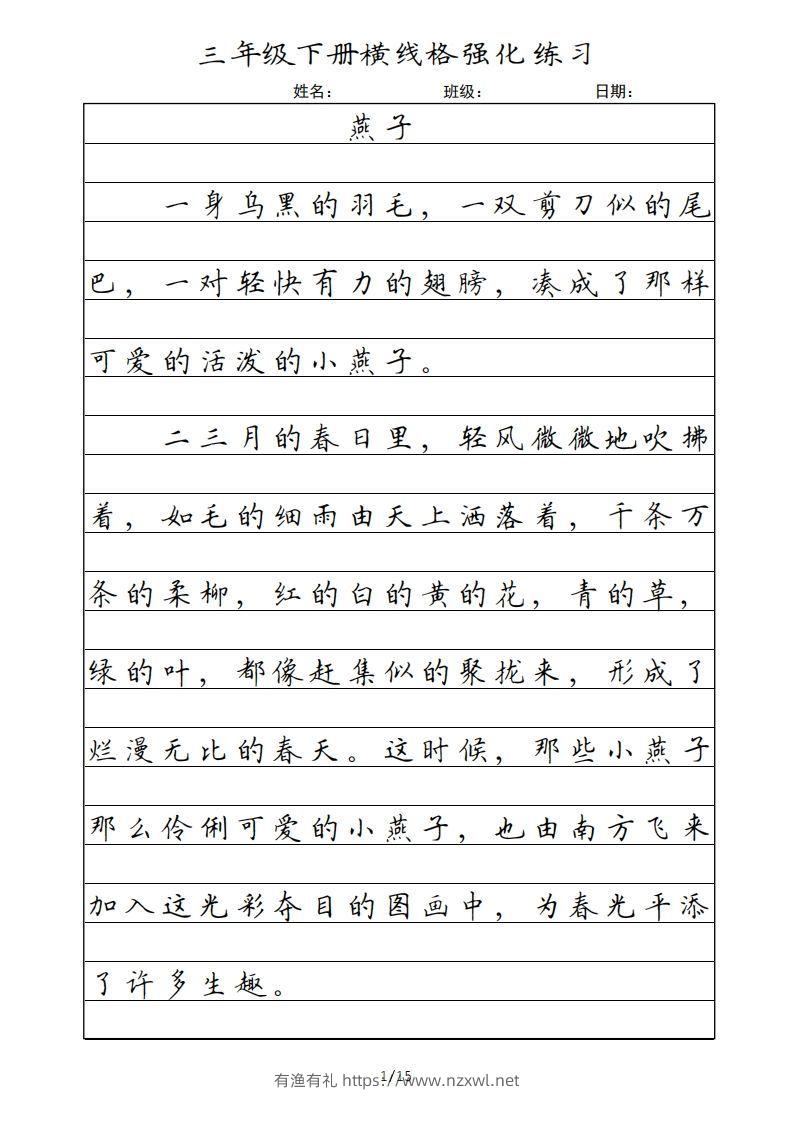 三年级下册横线格强化练习
姓名： 班级： 日期：
燕子
一身乌黑的羽毛，一双剪刀似的尾
巴，一对轻快有力的翅膀，凑成了那样
可爱的活泼的小燕子。
二三月的春日里，轻风微微地吹拂
着，如毛的细雨由天上洒落着，千条万
条的柔柳，红的白的黄的花，青的草，
绿的叶，都像赶集似的聚拢来，形成了
烂漫无比的春天。这时候，那些小燕子
那么伶俐可爱的小燕子，也由南方飞来
加入这光彩夺目的图画中，为春光平添
了许多生趣。
1/15
有渔有礼 https://www.nzxwl.net